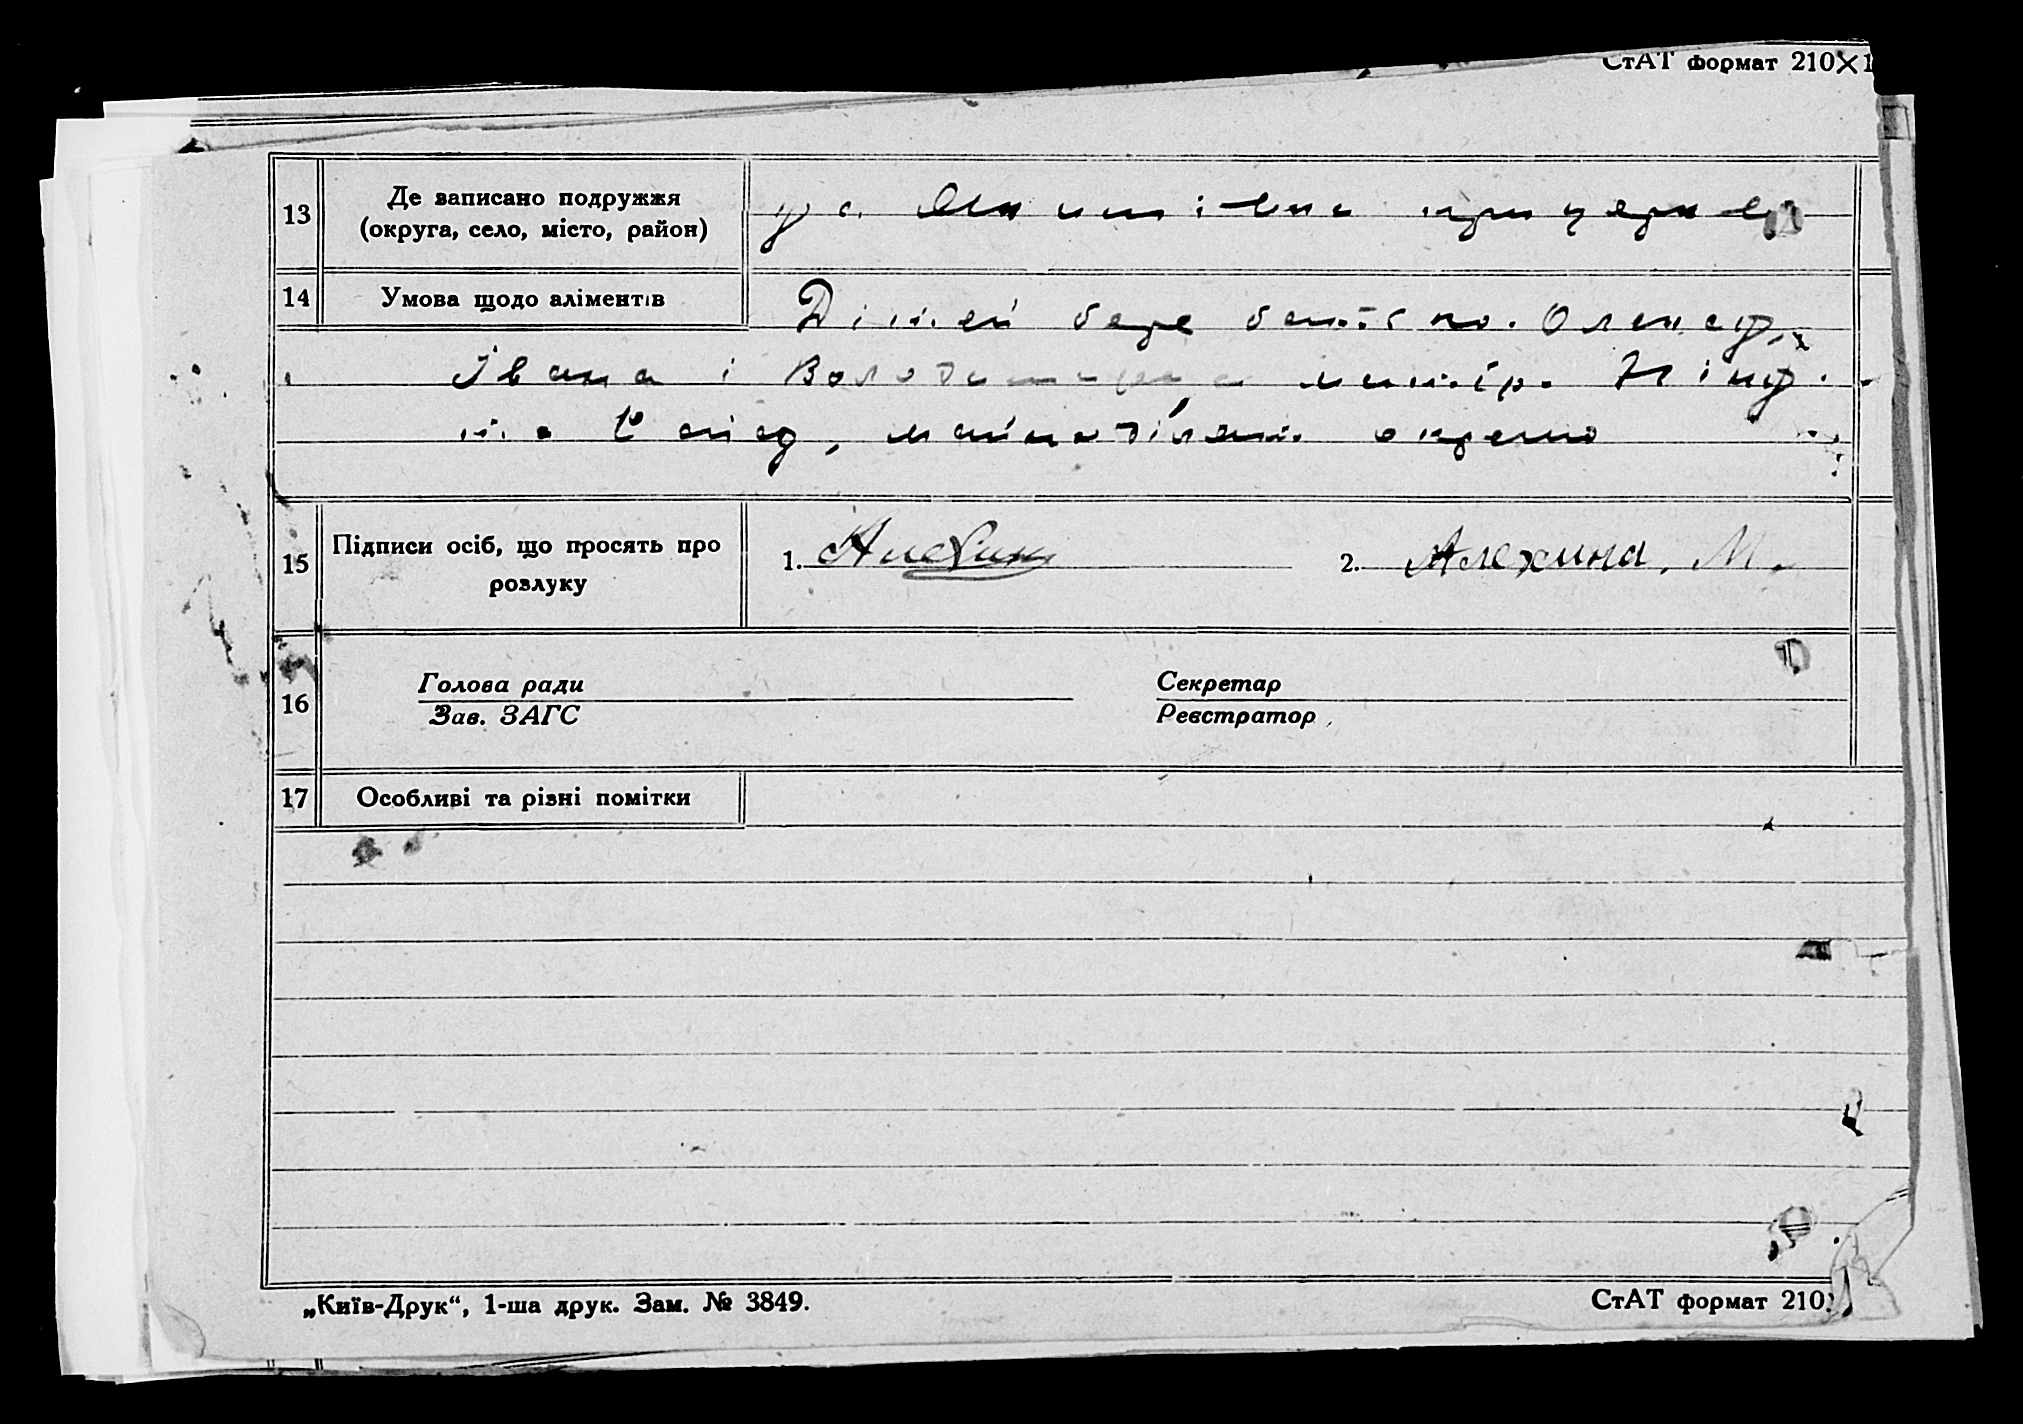 СтАТ формат 210×1
13
Де записано подружжя
(округа, село, місто, район)
у с.
14
Умова щодо аліментів
Дітей бере батько. Олександра
Івана і Володимира матір. Ніну
та окремо
15
Підписи осіб, що просять про
розлуку
1. Алехин
2. Алехина. М.
16
Голова ради
Зав. ЗАГС
Секретар
Реєстратор
17
Особливі та різні помітки
„Київ-Друк“, 1-ша друк. Зам. № 3849.
СтАТ формат 210